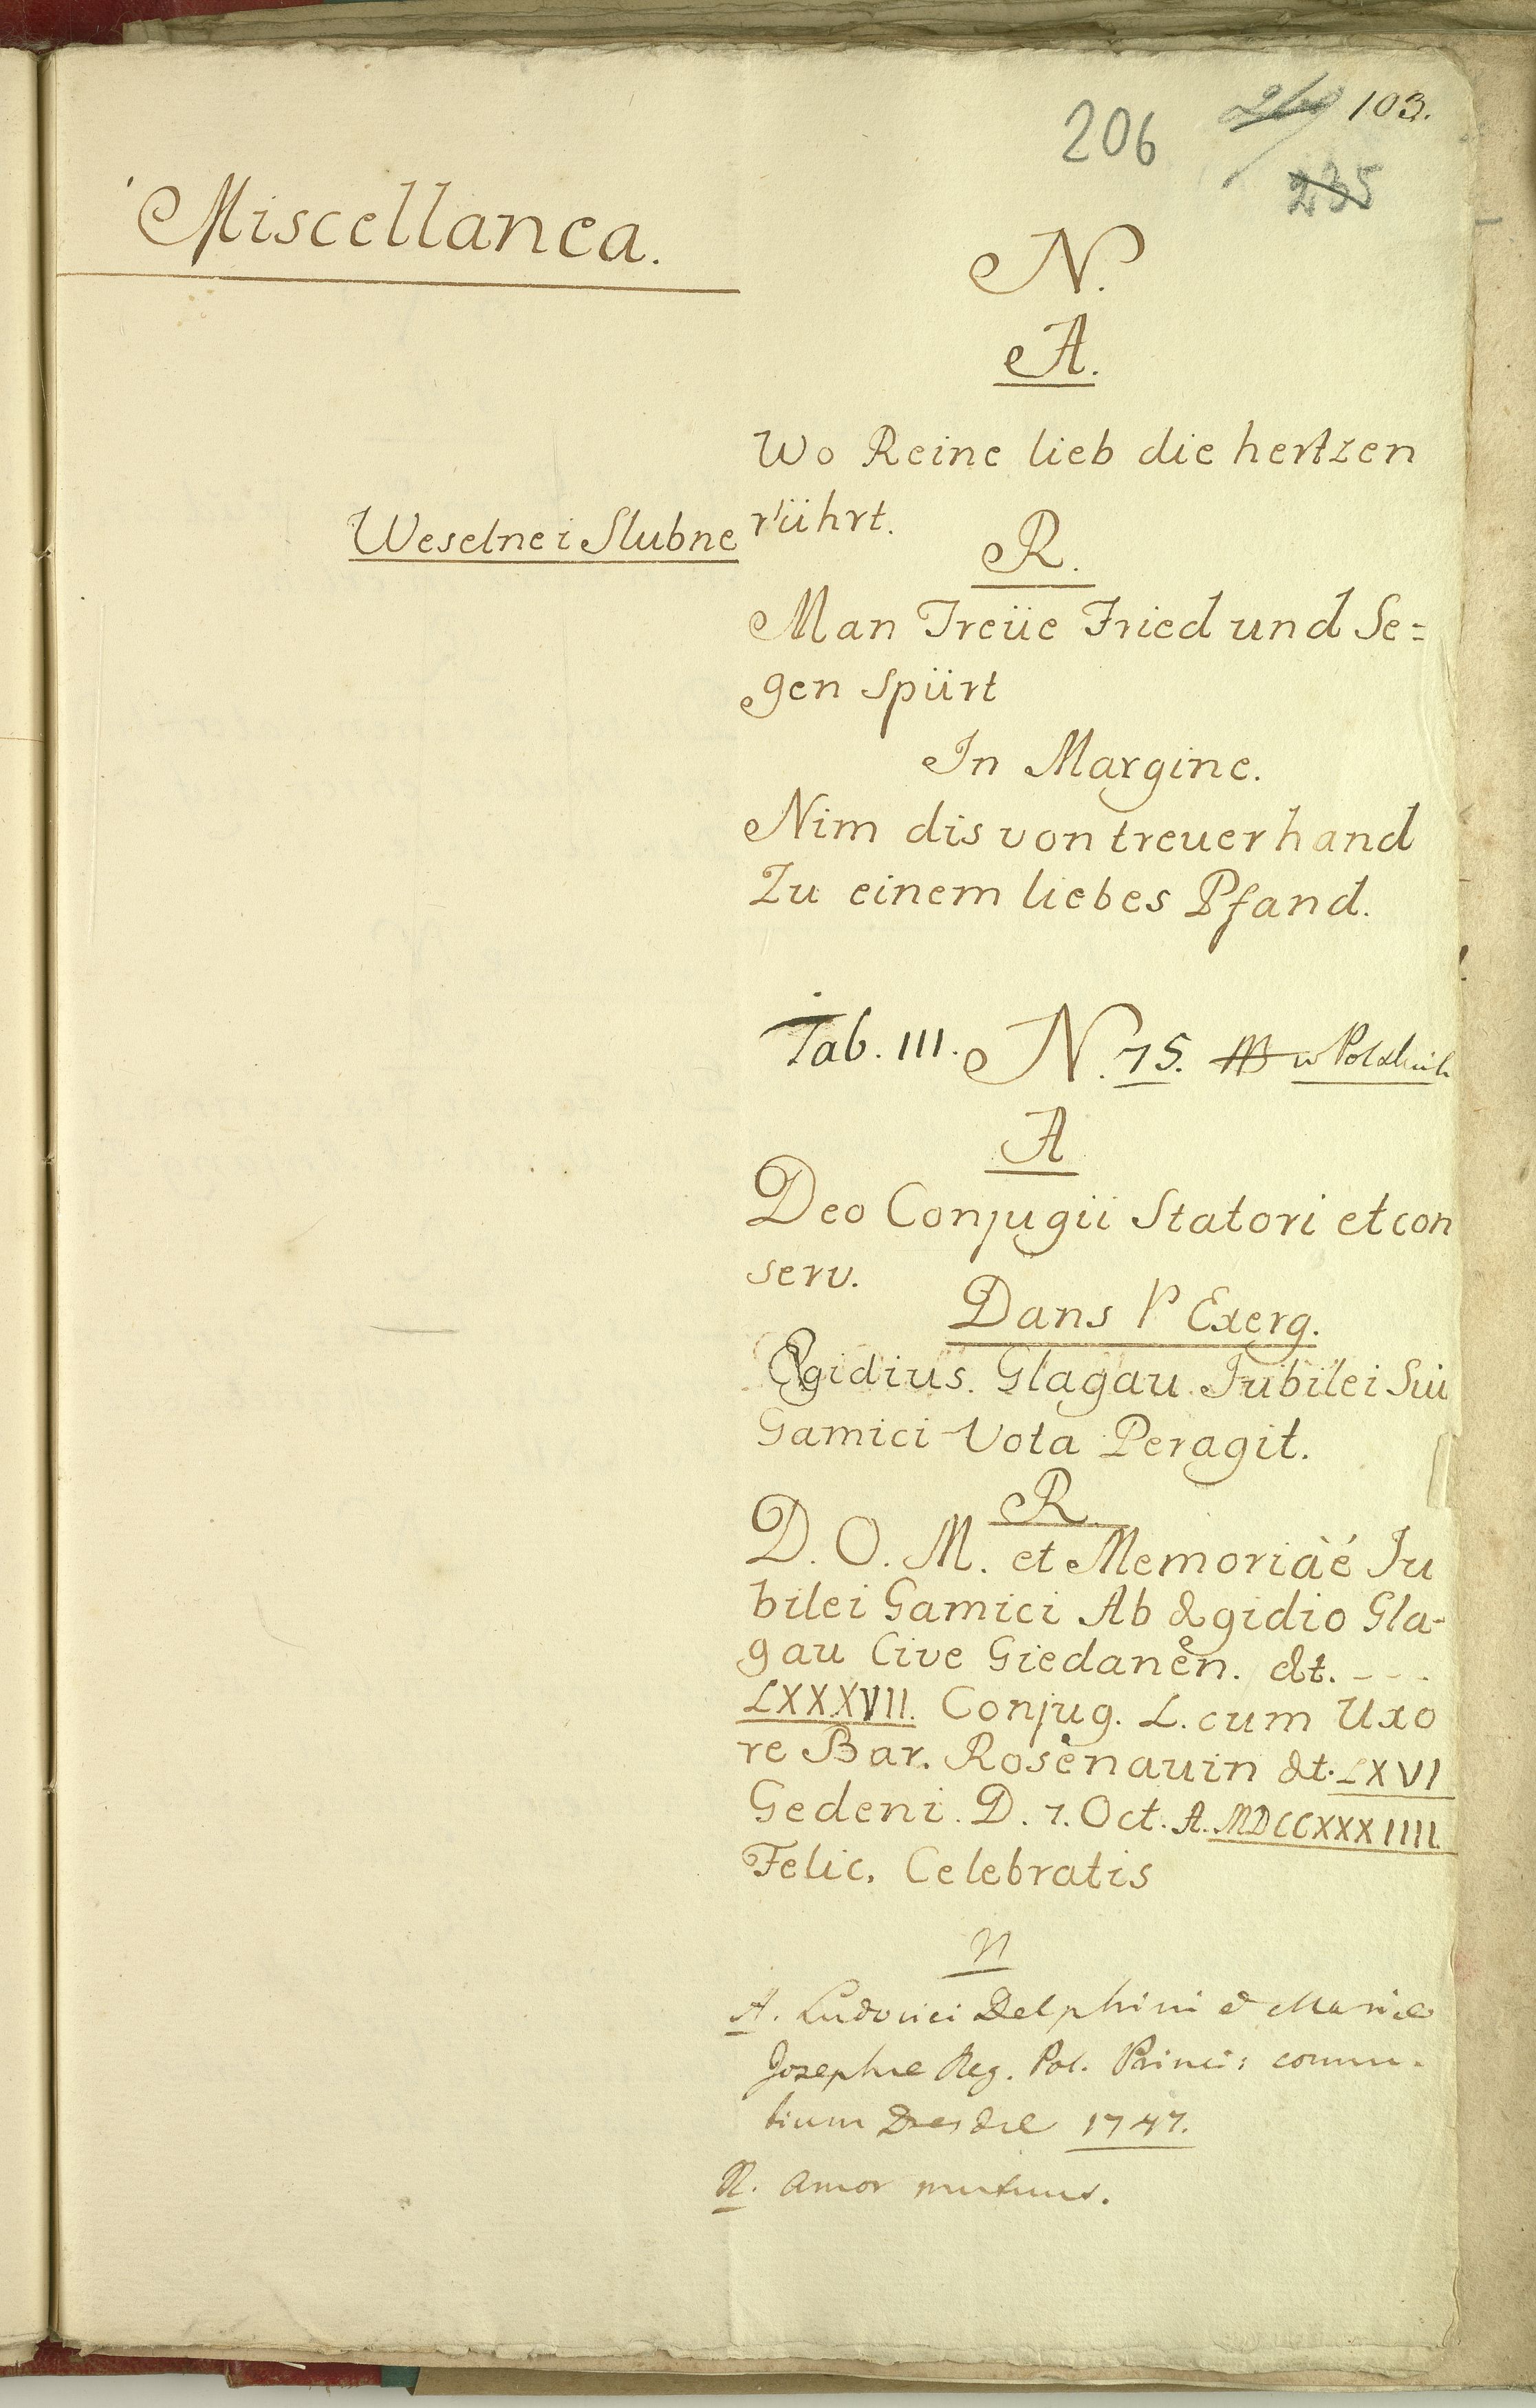 206 103.
235
Miscellanea.
N.
A.
Wo Reine lieb die hertzen
rührt.
Weselne i Slubne
R.
Man Treüe Fried und Se=
gen spürt
In Margine.
Nim dis von treuer hand
Zu einem liebes Pfand.
Tab. III. N. 75. w
A
Deo Conjugii Statori et con
serv.
Dans l' Exerg.
Ægidius. Glagau. Jubilei Sui
Gamici Vota Peragit.
R.
D. O. M. et Memoriàé Ju
bilei Gamici Ab Ægidio Gla-
gau Cive Giedanen. Æt. - - -
LXXXVII. Conjug. L. cum Uxo
re Bar. Rosenauin Æt. LXVI
Gedeni. D. 7. Oct. A. MDCCXXXIIII.
Felic. Celebratis
N
A. Ludovici Delphini & Mariæ
Josephæ Reg. Pol. Princi:
Dresdæ 1747.
R. Amor mutuus.